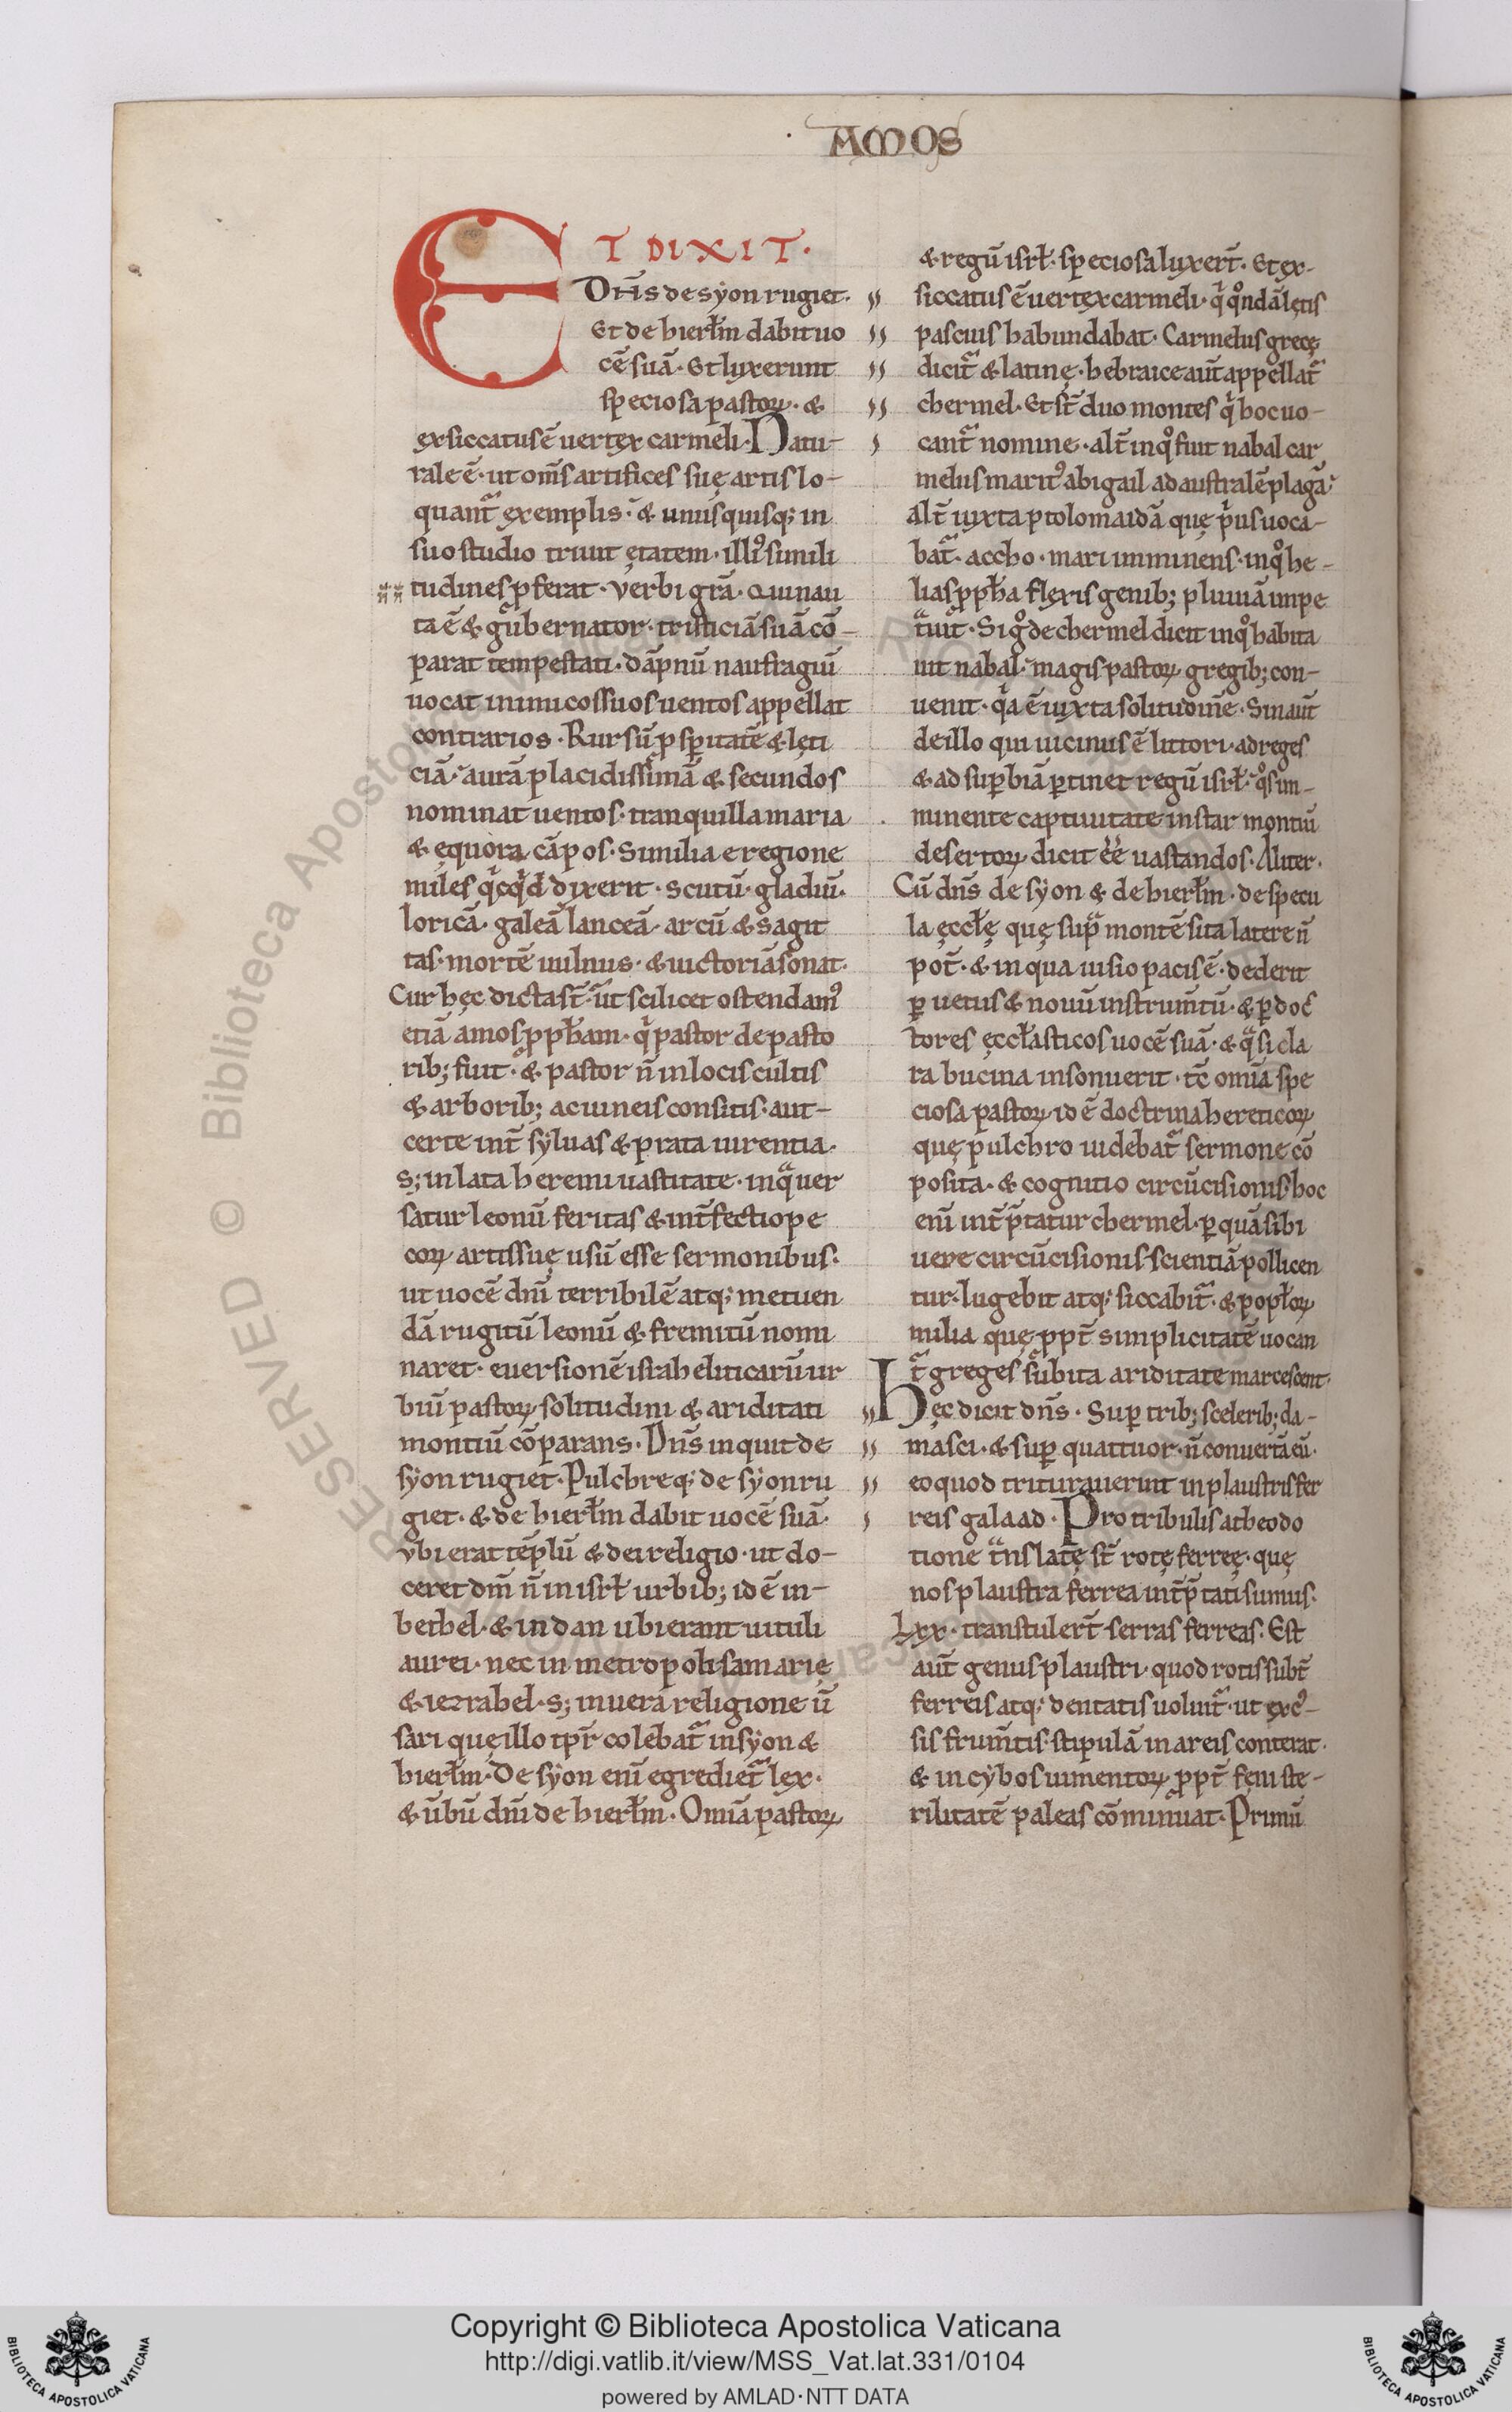 AMOS
ET DIXIT·
Dn̄s de syon rugiet·
Et de hierl̄m dabit uo
cē suā· Et luxerunt
speciosa pastoꝝ· &
exsiccatus ē uertex carmeli· Natu-
rale ē· ut om̄s artifices suę artis lo-
quant᷑ exemplis· & unusquisq; in
suo studio triuit ętatem· illiꝰ simili
tudines p̱ferat· Verbi grā· Qui nau
ta ē & gubernator· tristiciā suā cō-
parat tempestati· dāpnū naufragiū
uocat inimicos suos uentos appellat
contrarios· Rursū ꝓsperitatē & lęti
ciā· aurā placidissimā & secundos
nominat uentos· tranquilla maria
& ęquora cāpos· Similia e regione
miles qͥcqͥd dixerit· scutū· gladiū·
loricā· galeā lanceā· arcū & sagit
tas· mortē uulnus· & uictoriā sonat·
Cur hęc dicta st̄· ut scilicet ostendamꝰ
etiā amos ꝓph̄am· qͥ pastor de pasto
rib; fuit· & pastor n̄ in locis cultis
& arborib; ac uineis consitis· aut-
certe int̄ syluas & prata uirentia·
s; in lata heremi uastitate· in qͣ uer
satur leonū feritas & int̄fectio pe
coꝝ artis suę usū esse sermonibus·
ut uocē dn̄i terribilē atq; metuen
dā rugitū leonū & fremitū nomi
naret· euersionē israheliticarū ur
biū pastoꝝ solitudini & ariditati
montiū cōparans· Dn̄s inquit de
syon rugiet· Pulchreq; de syon ru
giet· & de hierl̄m dabit uocē suā·
Vbi erat tēplū & dei religio· ut do-
ceret dn̄m n̄ in isrł urbib; id ē in-
bethel· & in dan ubi erant uituli
aurei· nec in metropoli samarię
& iezrabel· s; in uera religione ū
sari quę illo tp̄r colebat᷑ in syon &
hierl̄m· De syon eni egrediet᷑ lex·
& ūbū dn̄i de hierl̄m· Omīa pastoꝝ
& regū isrł· speciosa luxert̄· Et ex-
siccatus ē uertex carmeli· qͥ qͦndā lętis
pascuis habundabat· Carmelus grecę
dicit᷑ & latinę· hebraice aut̄ appellat᷑
chermel· Et st̄ duo montes qͥ hoc uo-
cant᷑ nomine· alt̄ in qͦ fuit nabal car
melus maritꝰ abigail ad australē plagā·
Alt̄ iuxta ptolomaidā quę pͥus uoca-
bat᷑· accho· mari imminens· in qͦ he-
lias ꝓph̄a flexis genib; pluuiā impe
tͣuit· Si gͦ de chermel dicit in qͦ habita
uit nabal· magis pastoꝝ gregib; con-
uenit· qͥa ē iuxta solitudinē· Sin aut̄
de illo qui uicinus ē littori· ad reges
& ad suꝑbiā ꝑtinet regū isrł· qͦs im-
minente captiuitate instar montiū
desertoꝝ dicit ēē uastandos· Aliter·
Cū dn̄s de syon & de hierl̄m· de specu
la ęccłę quę supͣ montē sita latere n̄
pot̄· & in qua uisio pacis ē· dederit
ꝑ uetus & nouū instrum̄tū· & ꝑ doc
tores ęccłasticos uocē suā· & qͣsi cla
ra bucina insonuerit· tc̄ omīa spe
ciosa pastoꝝ id ē doctrina hereticoꝝ
quę pulchro uidebat᷑ sermone cō
posita· & cognitio circūcisionis· hoc
eni int̄pͥtatur chermel· ꝑ quā sibi
uere circūcisionis scientiā pollicen
tur· lugebit atq; siccabit᷑· & popłoꝝ
milia quę ꝓpt̄ simplicitatē uocan
t᷑ greges subita ariditate marcescent·
Hęc dicit dn̄s· Suꝑ trib; scelerib; da-
masci· & suꝑ quattuor· n̄ conuertā eū·
eo quod triturauerint in plaustris fer
reis galaad· Pro tribulis at heodo
tione tͣnslatę st̄ rotę ferreę· quę
nos plaustra ferrea int̄pͥtati sumus·
Lxx· transtulert̄ serras ferreas· Est
aut̄ genus plaustri· quod rotis subt̄
ferreis atq; dentatis uoluit᷑· ut excꝰ-
sis frum̄tis· stipulā in areis conterat·
& in cybos iumentoꝝ ꝓpt̄ fęni ste-
rilitatē paleas cōminuat· Primū
RESERVED © Biblioteca Apostolica Vaticana
Copyright © Biblioteca Apostolica Vaticana
http://digi.vatlib.it/view/MSS_Vat.lat.331/0104
powered by AMLAD·NTT DATA
BIBLIOTECA APOSTOLICA VATICANA
BIBLIOTECA APOSTOLICA VATICANA